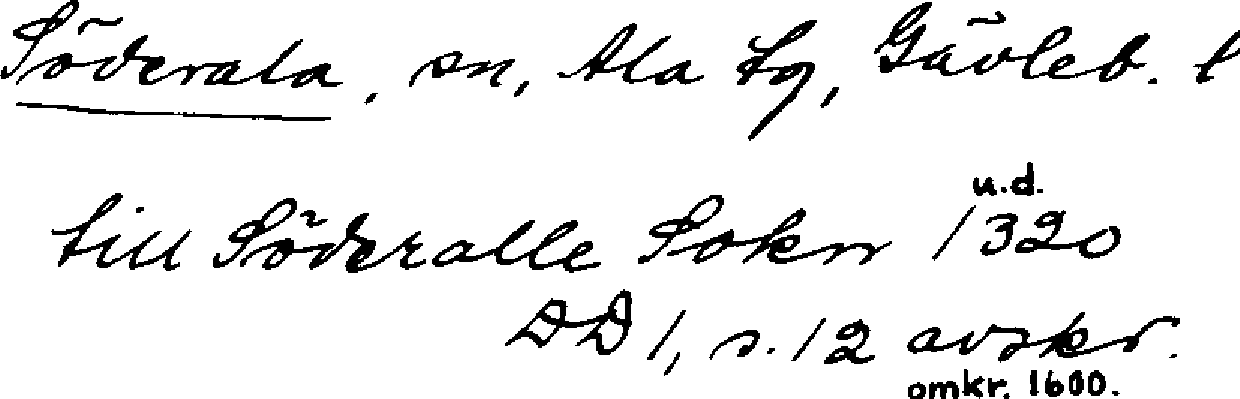 Söderala, sn, Ala tg, Gävleb. l
u.d.
till Söderalle Sokn 1320
DD 1, s. 12 avskr.
omkr. 1600.